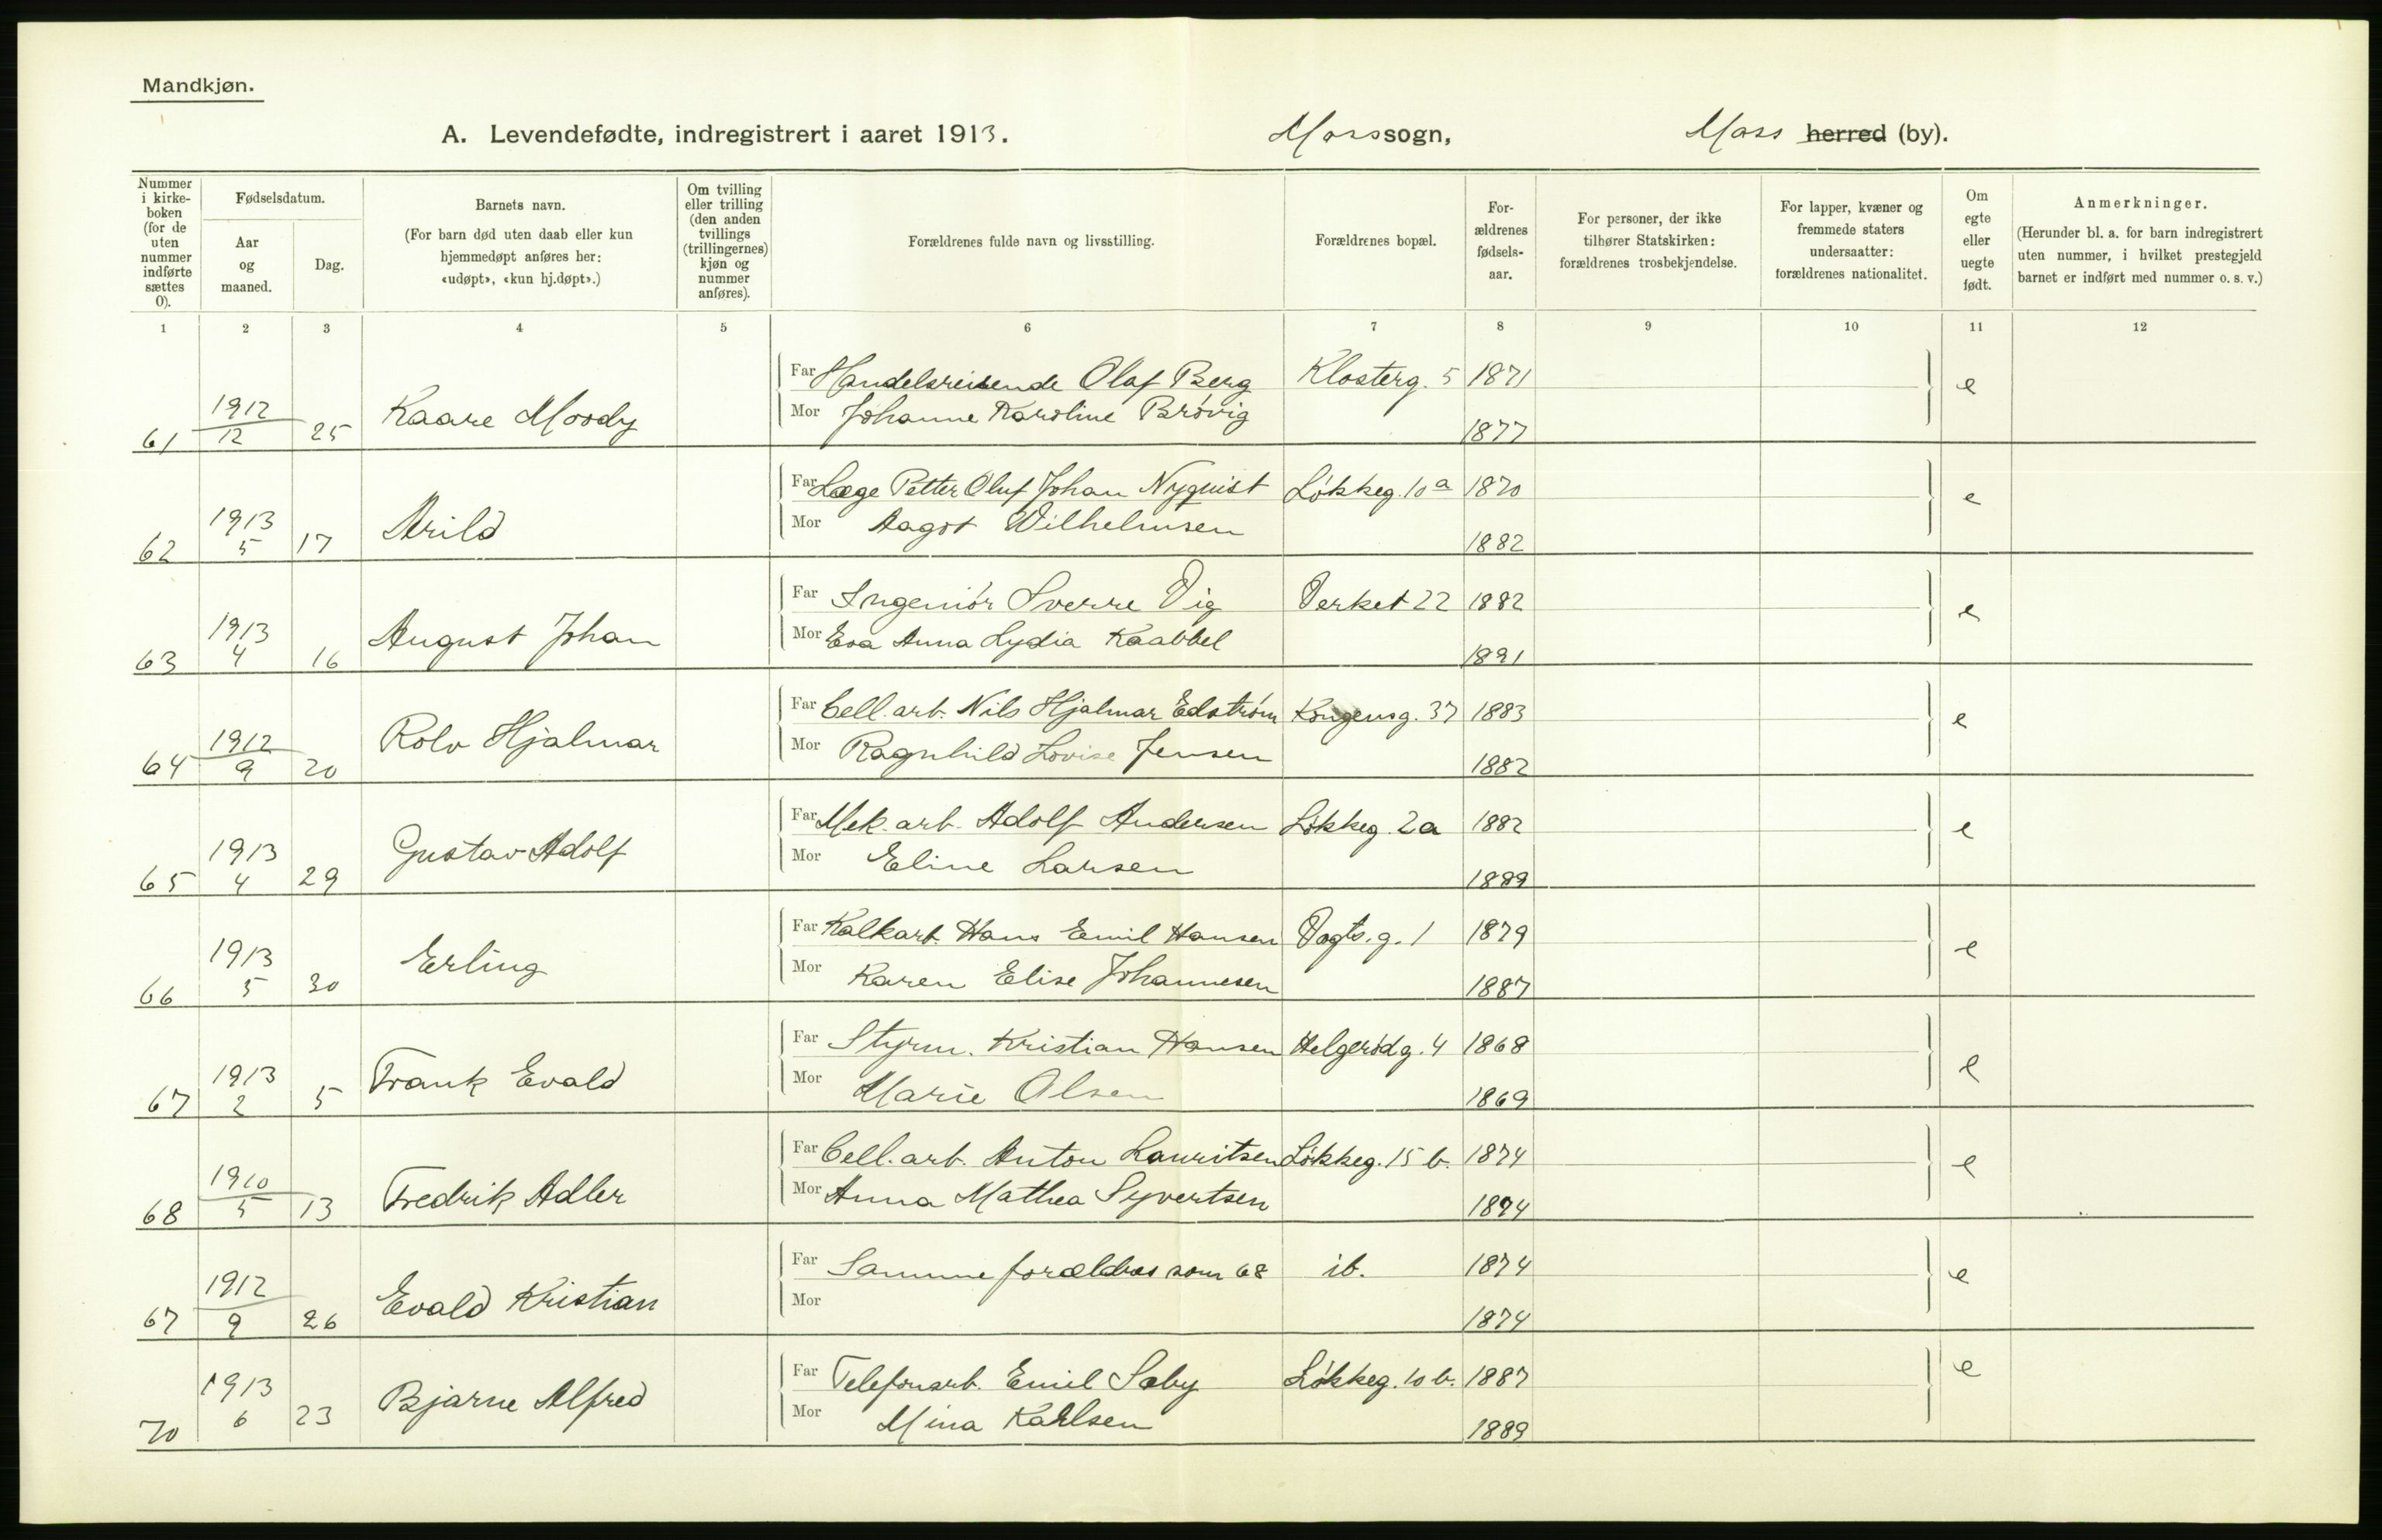 Mandkjøn.
A. Levendefødte, indregistrert i aaret 1913. Moss sogn, Moss herred (by).
Nummer i kirke-boken (for de uten nummer indførte sættes 0).
Fødselsdatum.
Aar og maaned.
Dag.
Barnets navn.
(For barn død uten daab eller kun hjemmedøpt anføres her: «udøpt», «kun hj.døpt».)
Om tvilling eller trilling (den anden tvillings (trillingernes) kjøn og nummer anføres).
Forældrenes fulde navn og livsstilling.
Forældrenes bopæl.
For-ældrenes fødsels-aar.
For personer, der ikke tilhører Statskirken: forældrenes trosbekjendelse.
For lapper, kvæner og fremmede staters undersaatter: forældrenes nationalitet.
Om egte eller uegte født.
Anmerkninger.
(Herunder bl. a. for barn indregistrert uten nummer, i hvilket prestegjeld barnet er indført med nummer o. s. v.)
1 2 3 4 5 6 7 8 9 10 11 12
Far Handelsreisende Olaf Berg Klosterg. 5 1871 e
61 1912 12 25 Kaare Moody Mor Johanne Karoline Brövig 1877
Far Læge Petter Oluf Johan Nyquist Lökkeg. 10 a 1870 e
62 1913 5 17 Arild Mor Aagot Wilhelmsen 1882
Far Ingeniör Sverre Vig Verket 22 1882 e
63 1913 4 16 August Johan Mor Eva Anna Lydia Kaabbel 1891
Far Cell. arb. Nils Hjalmar Edström Kongensg. 37 1883 e
64 1912 9 20 Rolv Hjalmar Mor Ragnhild Lovise Jensen 1882
Far Mek. arb. Adolf Andersen Lökkeg. 2a 1882 e
65 1913 4 29 Gustav Adolf Mor Eline Larsen 1889
Far Kalkarb. Hans Emil Hansen Vogts. g. 1 1879 e
66 1913 5 30 Erling Mor Karen Elise Johannesen 1887
Far Styrm. Kristian Hansen Helgerödg. 4 1868 e
67 1913 2 5 Frank Evald Mor Marie Olsen 1869
Far Cell. arb. Anton Lauritsen Lökkeg. 15 b. 1874 e
68 1910 5 13 Fredrik Adler Mor Anna Mathea Syvertsen 1874
Far Samme forældres som 68 ib. 1874 e
67 1912 9 26 Evald Kristian Mor 1874
Far Telefonarb. Emil Sæby Lökkeg. 10 b. 1887 e
70 1913 6 23 Bjarne Alfred Mor Mina Karlsen 1889